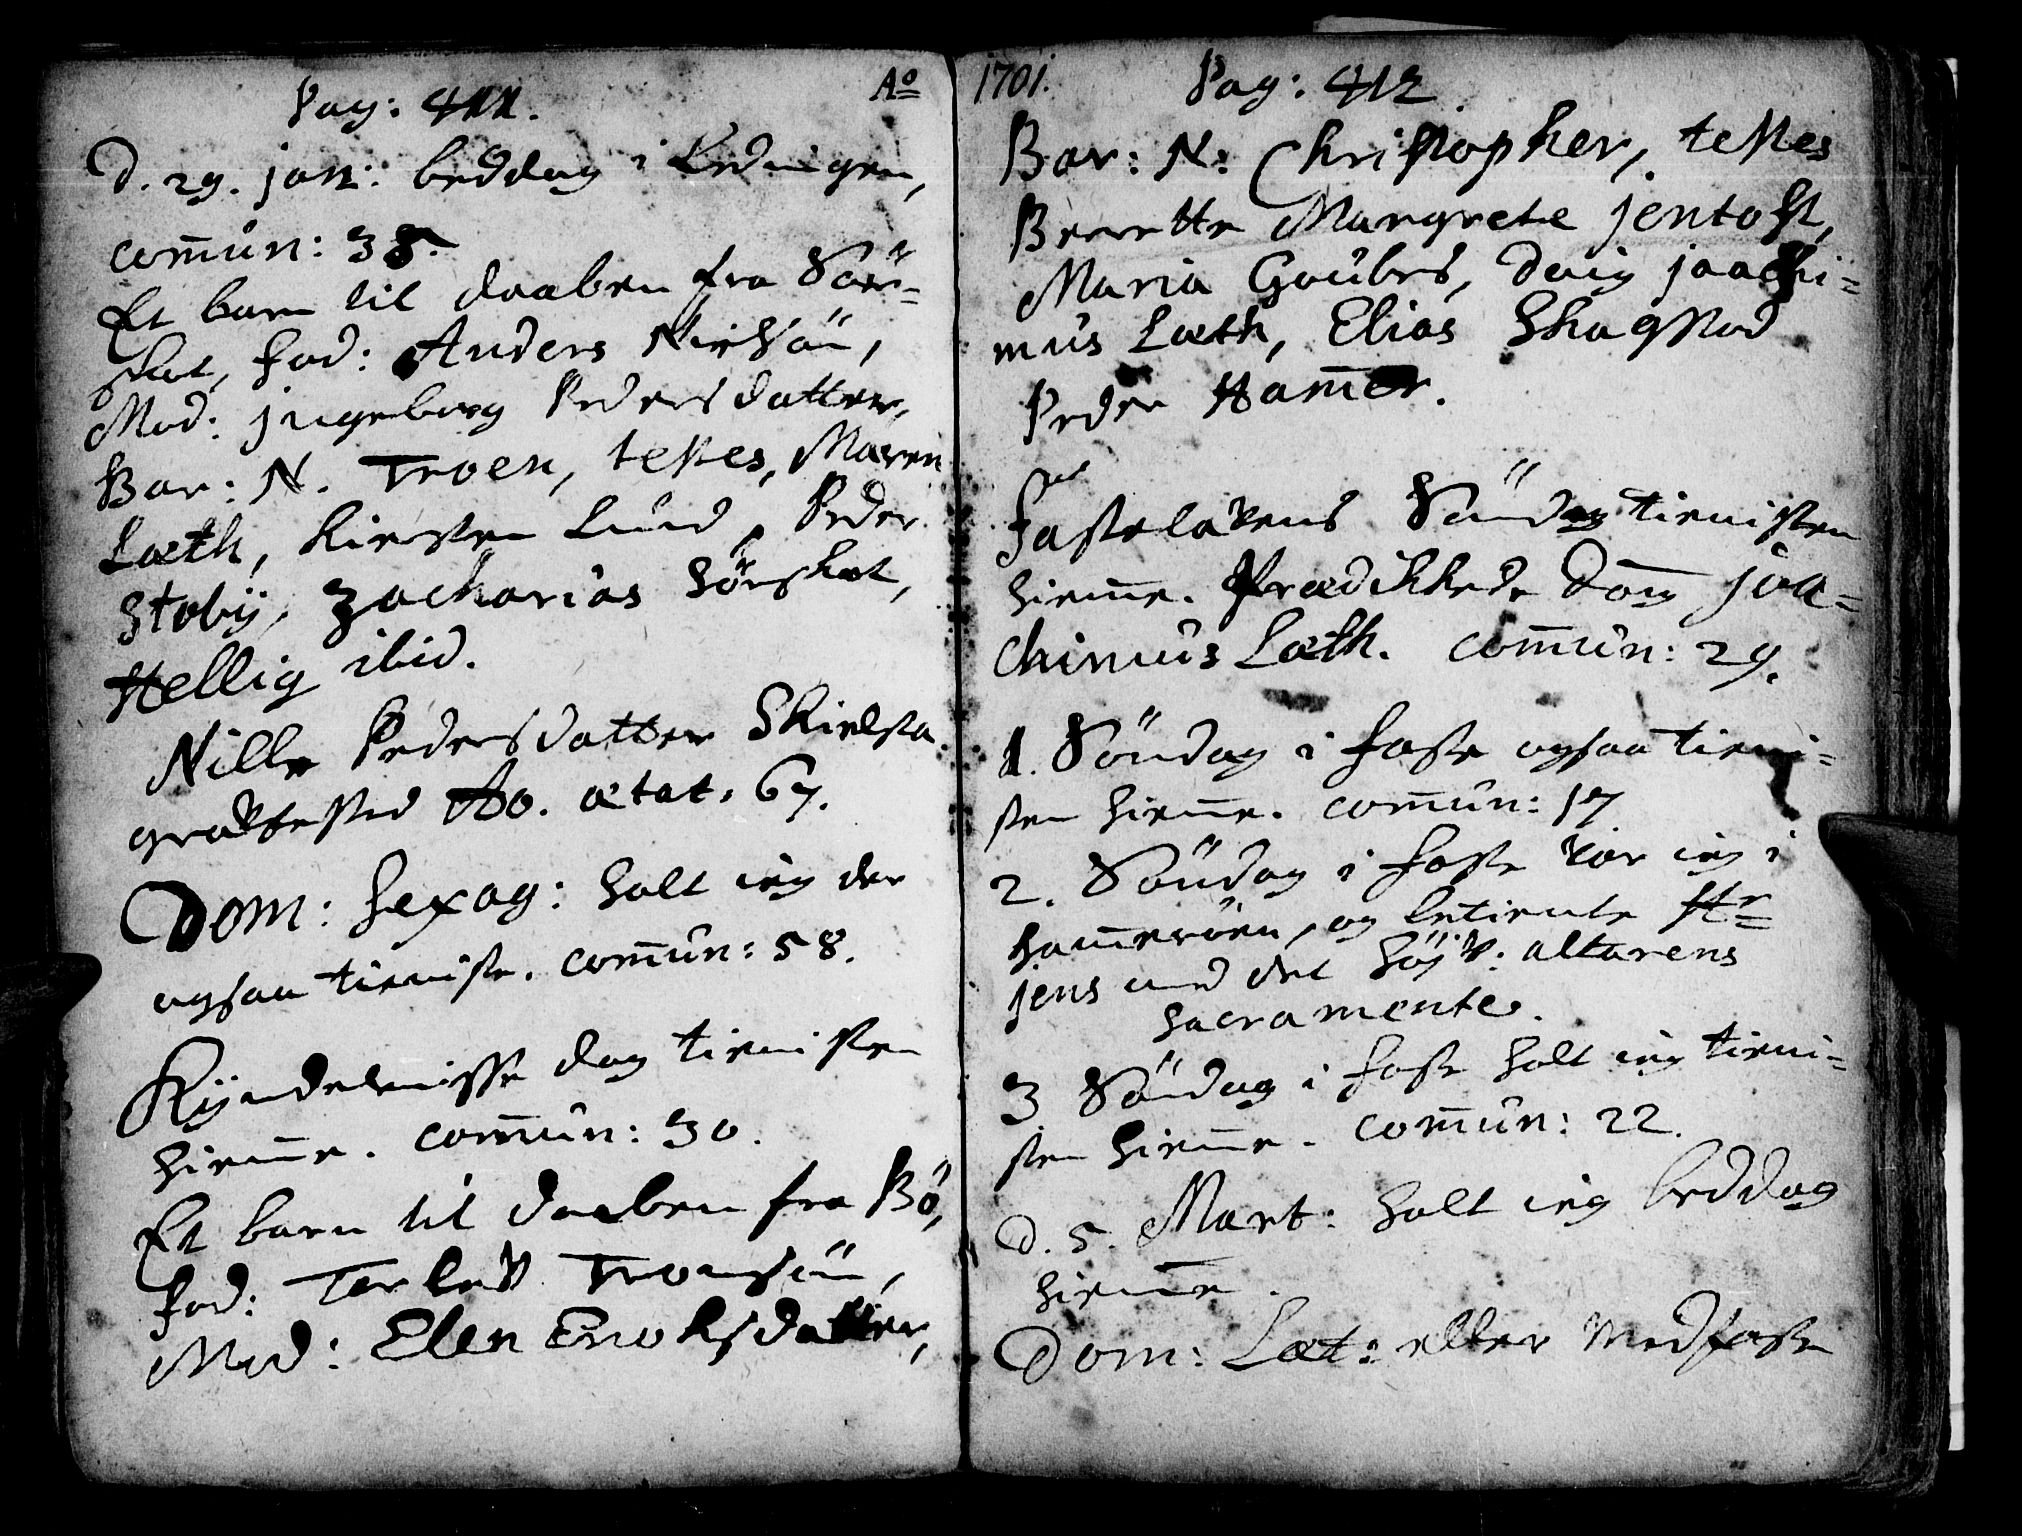 Pag: 411. Ao
D. 29. jan: beddag i Lødingen,
com̄un: 38.
Et barn til daaben fra Sør=
skot, fad: Anders Nielsøn,
Mod: jngeborg Pedersdatter,
Bar: N. Troen, testes, Maren
Læth, Kiersten Lund, Peder
Stobÿ, Zacharias Sørskot,
Hellig ibid.
Nille Pedersdatter Skielsta
grafsted Ao. ætat. 67.
Dom: Sexag: holt ieg der
ogsaa tieniste. com̄un: 58.
Kÿndelmisse dag tienisten
hiem̄e. com̄un: 30.
Et barn til daaben fra Bö,
fad: Torlef Tronsøn,
Mod: Elen Enoksdatter,
1701. Pag: 412
Bar: N: Christopher, testes
Berette Margrete jentoft,
Maria Goubes, Dnig joachi=
mus Læth, Elias Skagstad
Peder Ham̄er.
Fastelavens Søndag tienisten
hiem̄e. Prædikkede Dom̄ joa=
chimus Læth. com̄un: 29.
1. Søndag i faste ogsaa tieni=
sten hiem̄e. com̄un: 17
2. Søndag i faste var ieg i
Ham̄erøen, og betiente Hr=
jens med det høÿv: altarens
Sacramente.
3 Søndag i faste holt ieg tieni=
sten hiem̄e. com̄un: 22.
D. 5. Mart: holt ieg beddag
hiem̄e.
Dom: Læt: eller Medfaste